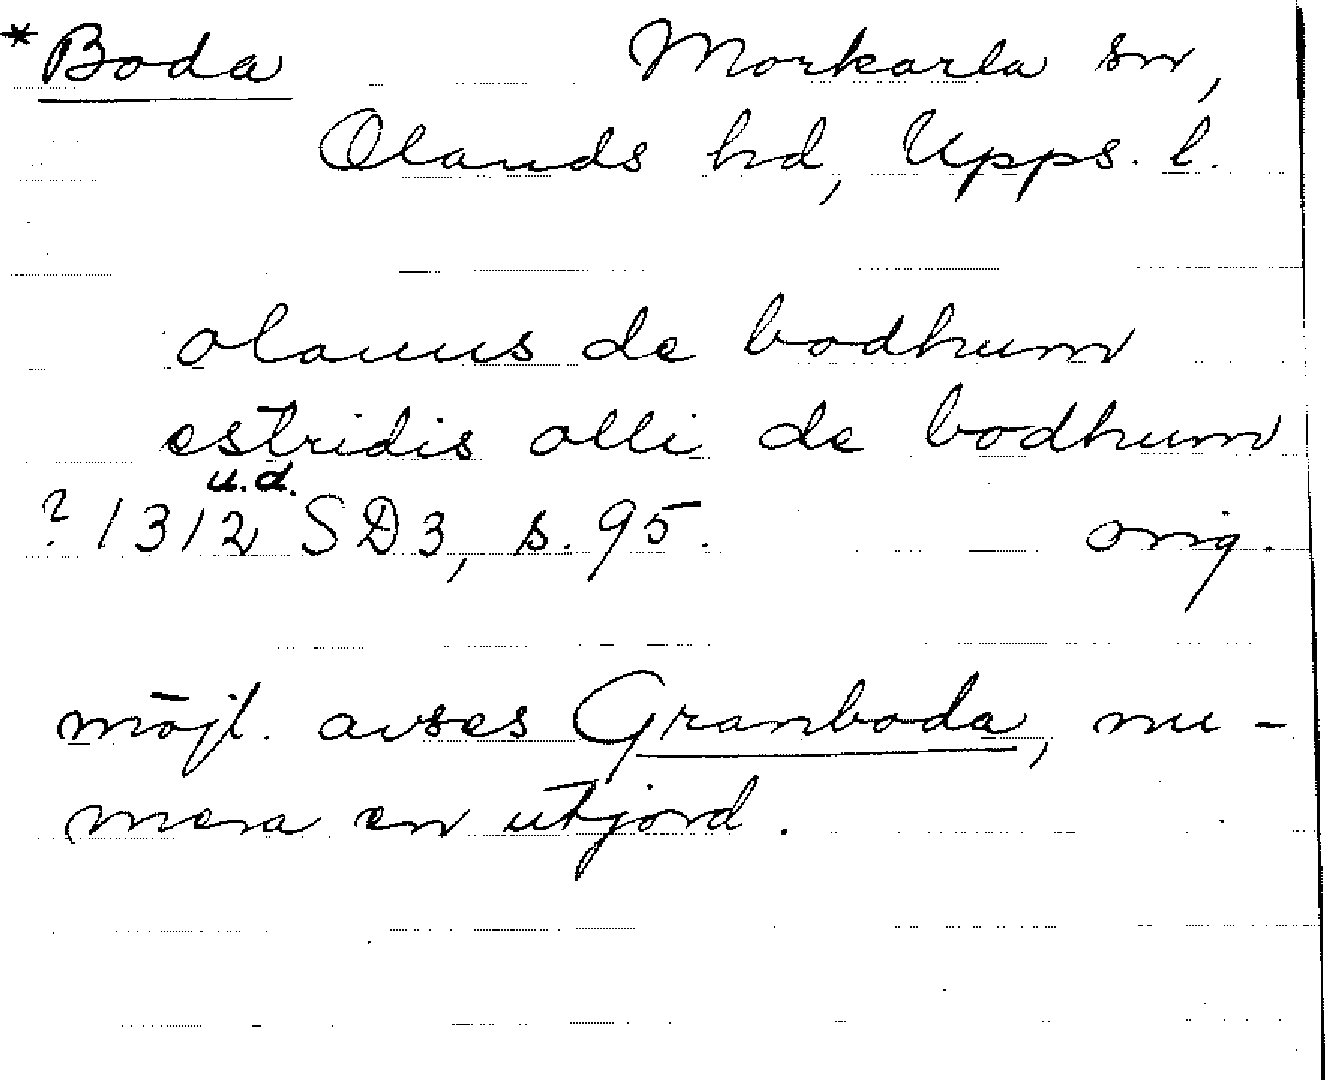 *Boda Morkarla sn,
Olands hd, Upps. l.
olauus de bodhum
estridis olli de bodhum
u.d.
? 1312 SD3, s. 95. orig.
möjl. avses Granboda, nu-
mera en utjord.